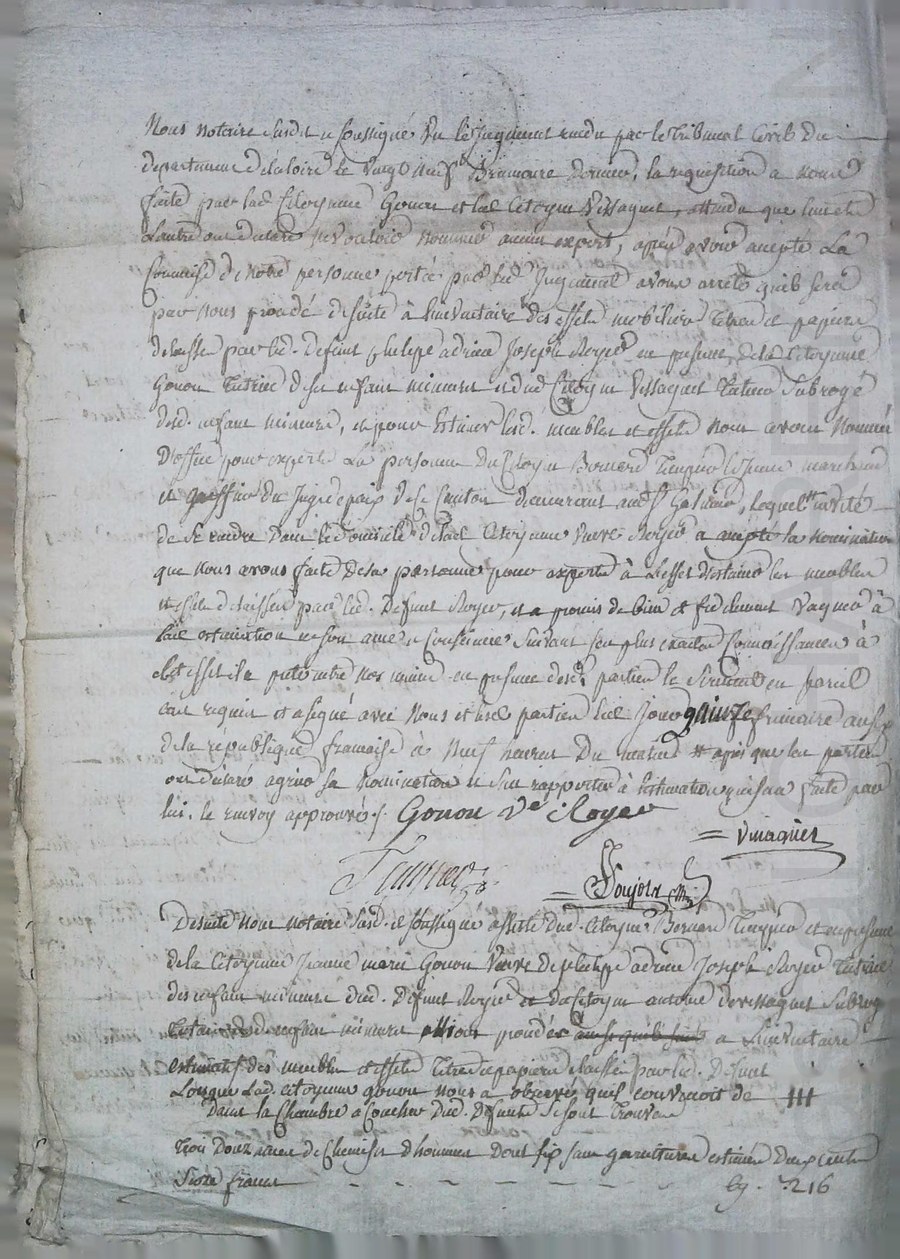 Nous notaire susdit et soussigné Vu le jugement rendu par le Tribunal Civil du
departement de la loire le vingt neuf Brumaire dernier, la requisition a nous
faite par lad. Citoyenne Gonon et led. Citoyen Vissaguet, attendu que lun et
Lautre ont déclaré ne vouloir nommer aucun expert, après avoir accepté La
Commise de notre personne portée par led. Jugement avons arrêté qu'il sera
par nous procédé de suite à linventaire des effets mobiliers titres et papiers
delaissés par led. Defunt philipe adrien Joseph Royer en presence de la Citoyenne
Gonon Tutrice de ses enfans mineurs et dud. Citoyen Vissaguet Tuteur Subrogé
desd. enfans mineurs, et pour Estimer lesd. meubles et effets Nous avons Nommé
D'office pour experte La personne du Citoyen Bernard lejeune marchand
et greffier du Juge de paix de ce Canton demeurant aud. St Galmier, lequel invité
de se rendre Dans le domicile de lad. Citoyenne Veuve Royer a accepté la nomination
que Nous avons faite de sa personne pour experte à Leffet d'estimer les meubles
et effets delaissés par led. Defunt Royer, et a promis de bien et fidelement vaquer à
lad. estimation en son ame et Conscience Suivant ses plus exactes Connoissances à
cet effet il a preté entre nos mains en presence desd. parties le Serment en pareil
cas requis et a signé avec Nous et lesd. parties led. Jour quinze frimaire an six
de la république francaise à Neuf heures Du matin # après que les parties
ont déclaré agréer sa Nomination et sen rapporter à lestimation qui sera faite par
lui. le renvoy approuvé ./. Gonon Ve Royer
= Vissaguet
= Poujol
De suite Nous notaire susd. et soussigné assisté dud. Citoyen Bernard et en presence
de la Citoyenne Jeanne marie Gonon Veuve de philippe adrien Joseph Royer Tutrice
des enfans mineurs dud. Defunt Royer et du Citoyen antoine Devissaguet Subrogé
desd. enfans mineurs avons procédé a Linventaire
estimatif des meubles et effets titres et papiers delaissés par led. Defunt
Lorsque Lad. citoyenne gonon nous a observé quil convenoit de
Dans la Chambre a Coucher dud. Defunt Se sont Trouvés
Trois Douzaines de Chemises d'hommes Dont six sans garnitures estimées Deux cents
Seize francs - - - - - - Cy. 216